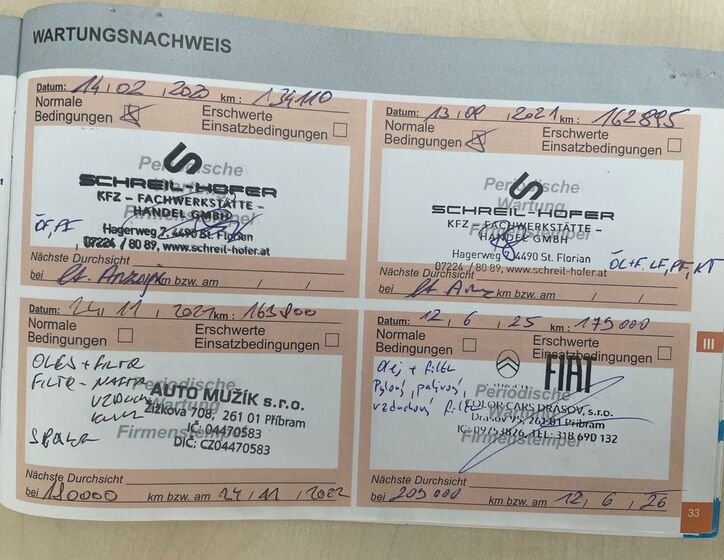 WARTUNGSNACHWEIS
Datum: 14, 02, 2020 km: 134110
Normale
Bedingungen
Erschwerte
Einsatzbedingungen
Periodische
SCHREIL-HOFER
KFZ - FACHWERKSTÄTTE -
HANDEL GMBH
Hagerweg 7, 4490 St. Florian
07224 / 80 89, www.schreil-hofer.at
ÖF, PF
Nächste Durchsicht
bei lt. Anzeige km bzw. am / /
Datum: 13, 09, 2021 km: 162895
Normale
Bedingungen
Erschwerte
Einsatzbedingungen
Periodische
Wartung
SCHREIL-HOFER
KFZ - FACHWERKSTÄTTE -
HANDEL GMBH
Firmenstempel
Hagerweg 7, 4490 St. Florian
07224 / 80 89, www.schreil-hofer.at
ÖL+F, LF, PF,
Nächste Durchsicht
bei lt. km bzw. am / /
24, 11, 2021 km: 165000
Normale
Bedingungen
Erschwerte
Einsatzbedingungen
OLEJ + FILTR
FILTR -
Periodische
Wartung
Firmenstempel
AUTO MUŽÍK s.r.o.
Žižkova 708, 261 01 Příbram
IČ: 04470583
DIČ: CZ04470583
Nächste Durchsicht
bei 180000 km bzw. am 24, 11, 2022
Datum: 12, 6, 25 km: 179000
Normale
Bedingungen
Erschwerte
Einsatzbedingungen
Olej + filtr
Pylový, palivový,
vzduchový filtr
FIAT
Periodische
Wartung
Firmenstempel
COLOR CARS DRÁSOV, s.r.o.
Drásov 95, 261 01 Příbram
IČ: 09753826, TEL: 318 690 132
Nächste Durchsicht
bei 209000 km bzw. am 12, 6, 26
III
33